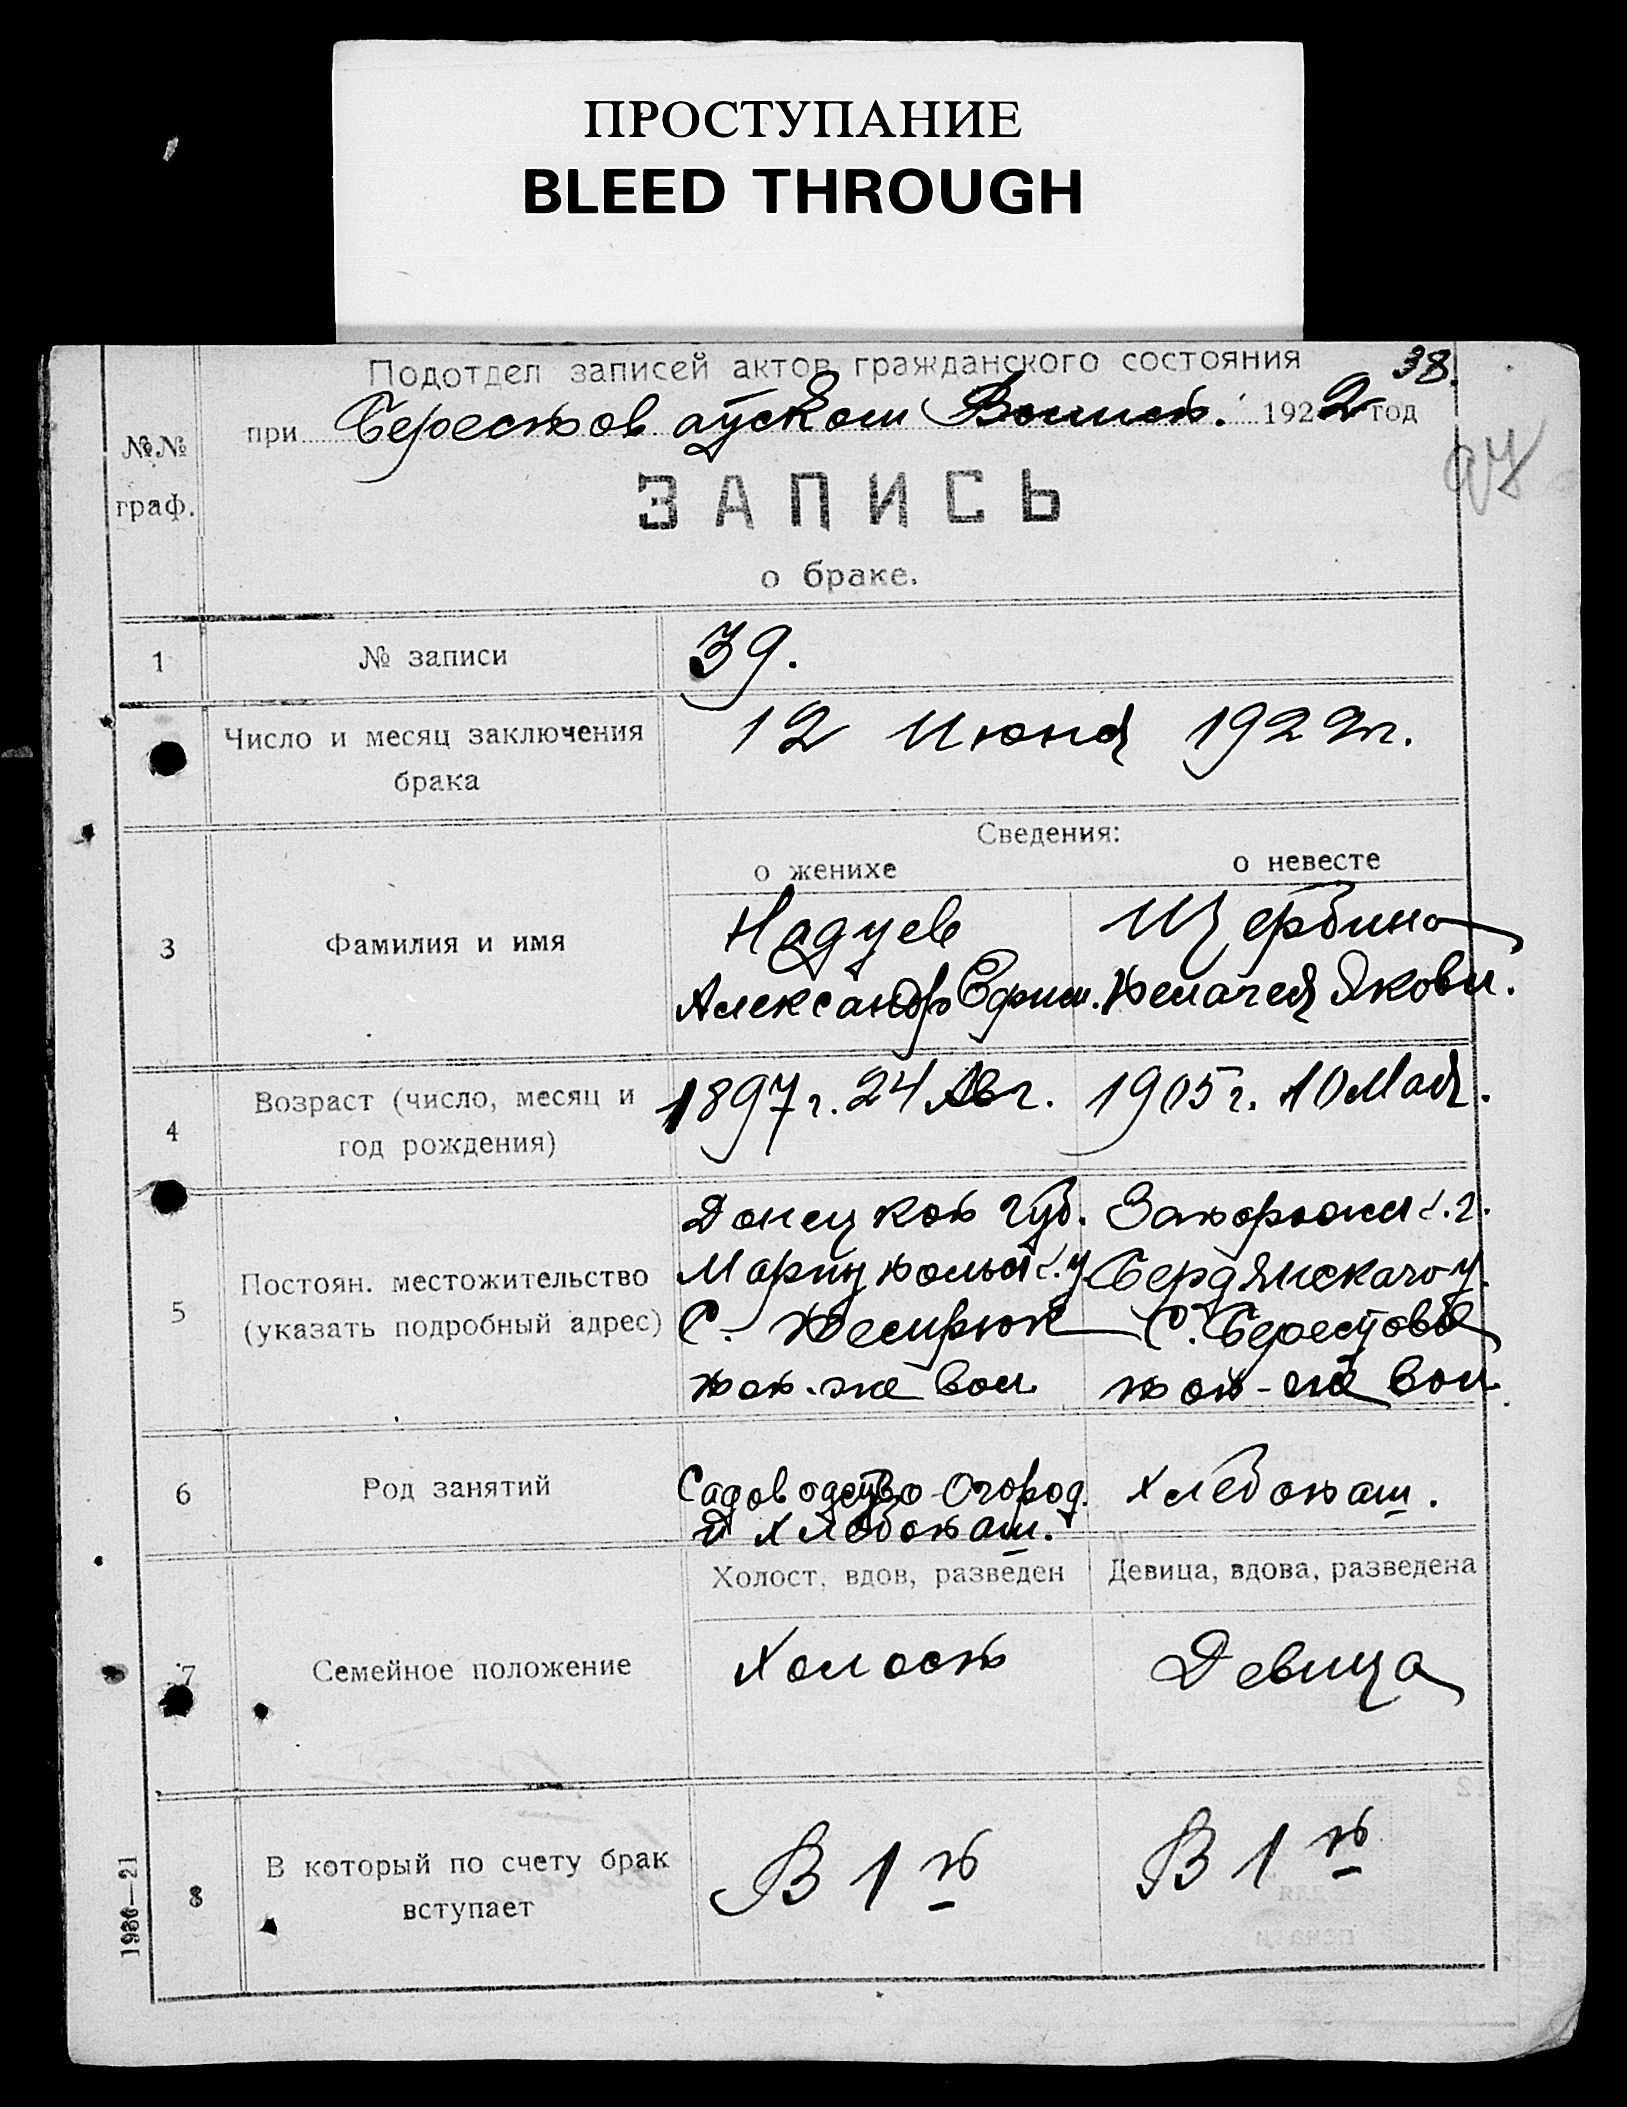 ПРОСТУПАНИЕ
BLEED THROUGH
Подотдел записей актов гражданского состояния
38.
при Берестов Волисп. 1922 год
97
№№
граф.
ЗАПИСЬ
о браке.
1 № записи 39.
Число и месяц заключения
брака
12 Июня 1922 г.
Сведения:
о женихе о невесте
3 Фамилия и имя
Надуев Щербина
Александр Ефим. Пелагея Яковл.
4 Возраст (число, месяц и
год рождения)
1897 г. 24 Авг. 1905 г. 10 Мая.
5 Постоян. местожительство
(указать подробный адрес)
Донецкой Губ. Запорожс. г.
Мариупольс. у. Бердянскаго у.
С. Темрюк С. Берестовое
той-же вол. той-же вол.
6 Род занятий
Садоводство-Огород. Хлебопаш.
и хлебопаш.
Холост, вдов, разведен Девица, вдова, разведена
7 Семейное положение
Холост Девица
8 В который по счету брак
вступает
В 1й В 1й
1930—21